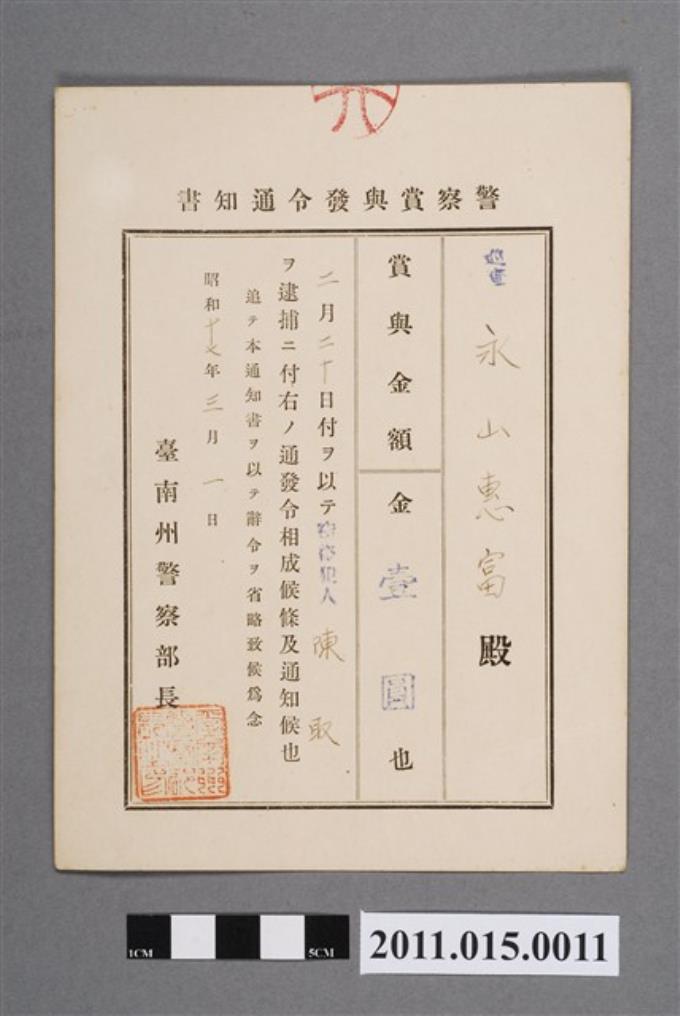 警察賞與發令通知書
巡查 永山惠富殿
賞與金額 金壹圓也
二月二十日付ヲ以テ窃盗犯人陳取
ヲ逮捕ニ付右ノ通發令相成候條及通知候也
追テ本通知書ヲ以テ辭令ヲ省略致候爲念
昭和十七年三月一日
臺南州警察部長
1CM
5CM
2011.015.0011